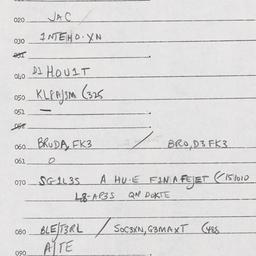 020 JAC
030 INTEHO.YN
031
040 D1 HOU1T
050 KLPAJSM (325
051 —
052
060 BRUDA, FK3 / BRO, D3FK3
061 0
070 SG-1L35 A HU-E F1NAFEJET (151010
L8-AP3S QN DOKTE
080 BLE/T3RL / SOC3XN, G3MAXT (485
090 A/TE